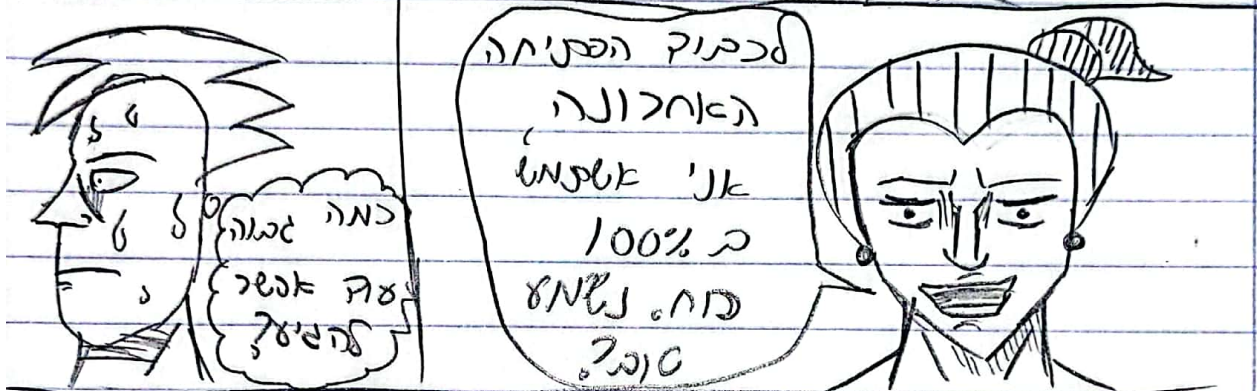 לכבוד הפתיחה
האחרונה
אני אשתמש
ב 100%
כוח. נשמע
טוב?
כמה גבוה
עוד אפשר
להגיע?